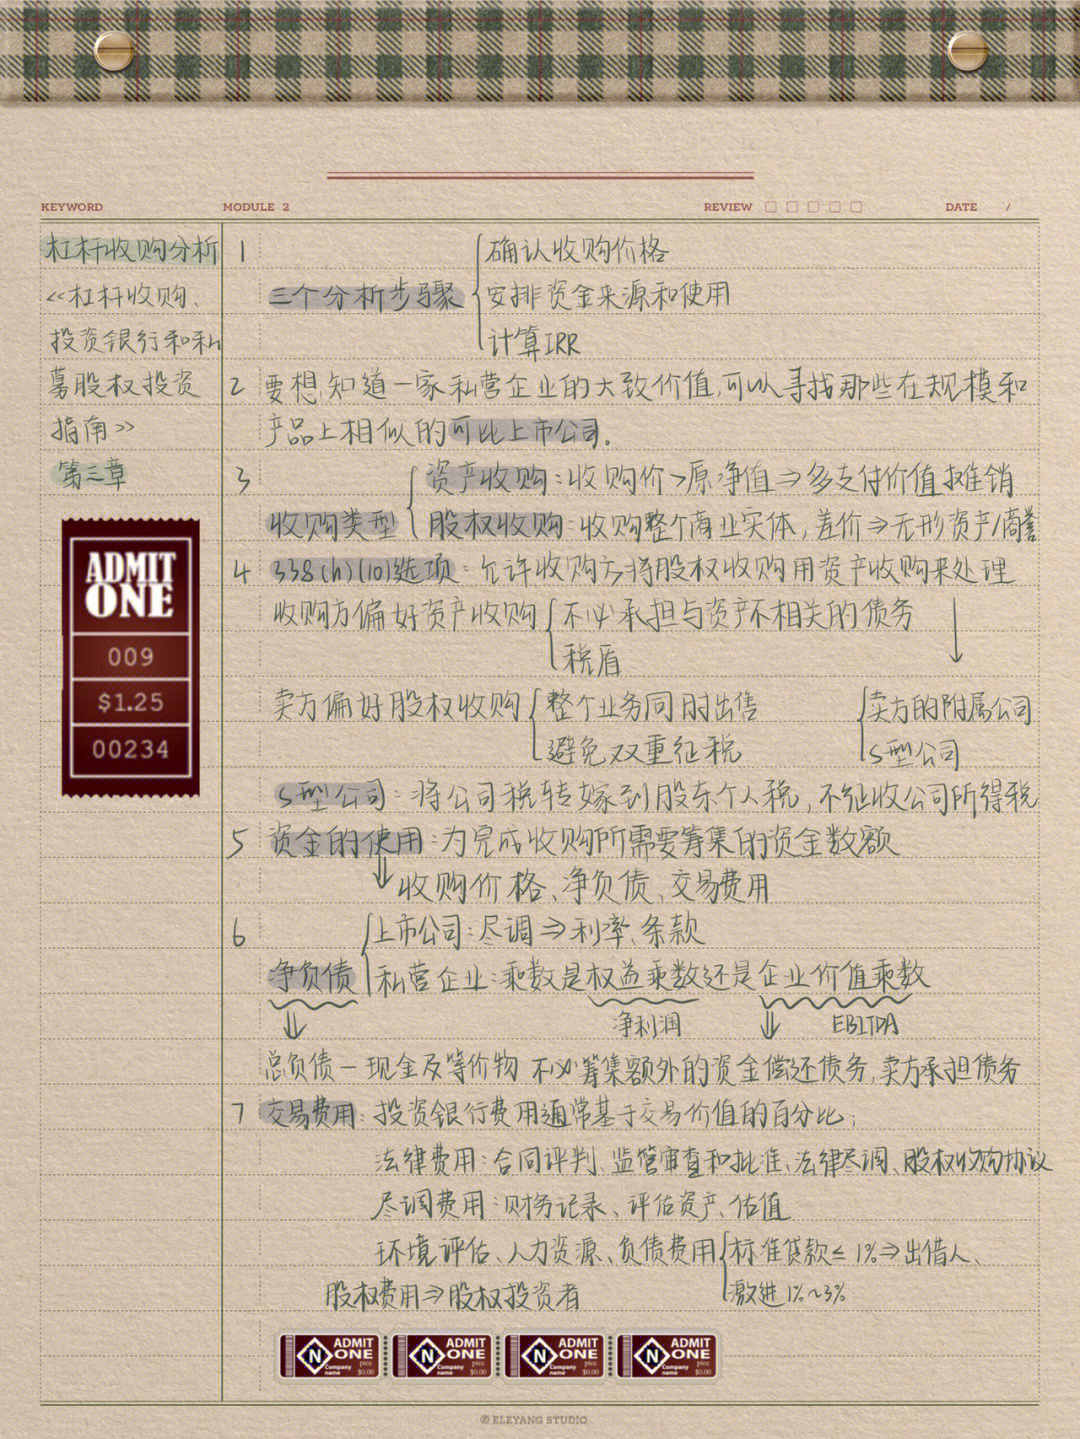 KEYWORD MODULE 2 REVIEW DATE /
杠杆收购分析
<<杠杆收购、
投资银行和私
募股权投资
指南>>
第三章
ADMIT
ONE
009
$1.25
00234
1
三个分析步骤
确认收购价格
安排资金来源和使用
计算IRR
2 要想知道一家私营企业的大致价值,可以寻找那些在规模和
产品上相似的可比上市公司。
3
收购类型
资产收购:收购价>原净值⇒多支付价值摊销
股权收购:收购整个商业实体,差价⇒无形资产/商誉
4 338(h)(10)选项:允许收购方将股权收购用资产收购来处理
收购方偏好资产收购
不必承担与资产不相关的债务
税盾
↓
卖方的附属公司
S型公司
卖方偏好股权收购
整个业务同时出售
避免双重征税
S型公司:将公司税转嫁到股东个人税,不征收公司所得税
5 资金的使用:为完成收购所需要筹集的资金数额
⇓收购价格、净负债、交易费用
6
净负债
上市公司:尽调⇒利率、条款
私营企业:乘数是权益乘数还是企业价值乘数
⇓ 净利润 ⇓ EBITDA
总负债-现金及等价物 不必筹集额外的资金偿还债务,卖方承担债务
7 交易费用:投资银行费用通常基于交易价值的百分比;
法律费用:合同评判、监管审查和批准、法律尽调、股权收购协议
尽调费用:财务记录、评估资产、估值
环境评估、人力资源、负债费用
标准贷款≤1%⇒出借人、
激进1%~3%
股权费用⇒股权投资者
N ADMIT ONE Company name price $0.00
N ADMIT ONE Company name price $0.00
N ADMIT ONE Company name price $0.00
N ADMIT ONE Company name price $0.00
© ELEYANG STUDIO